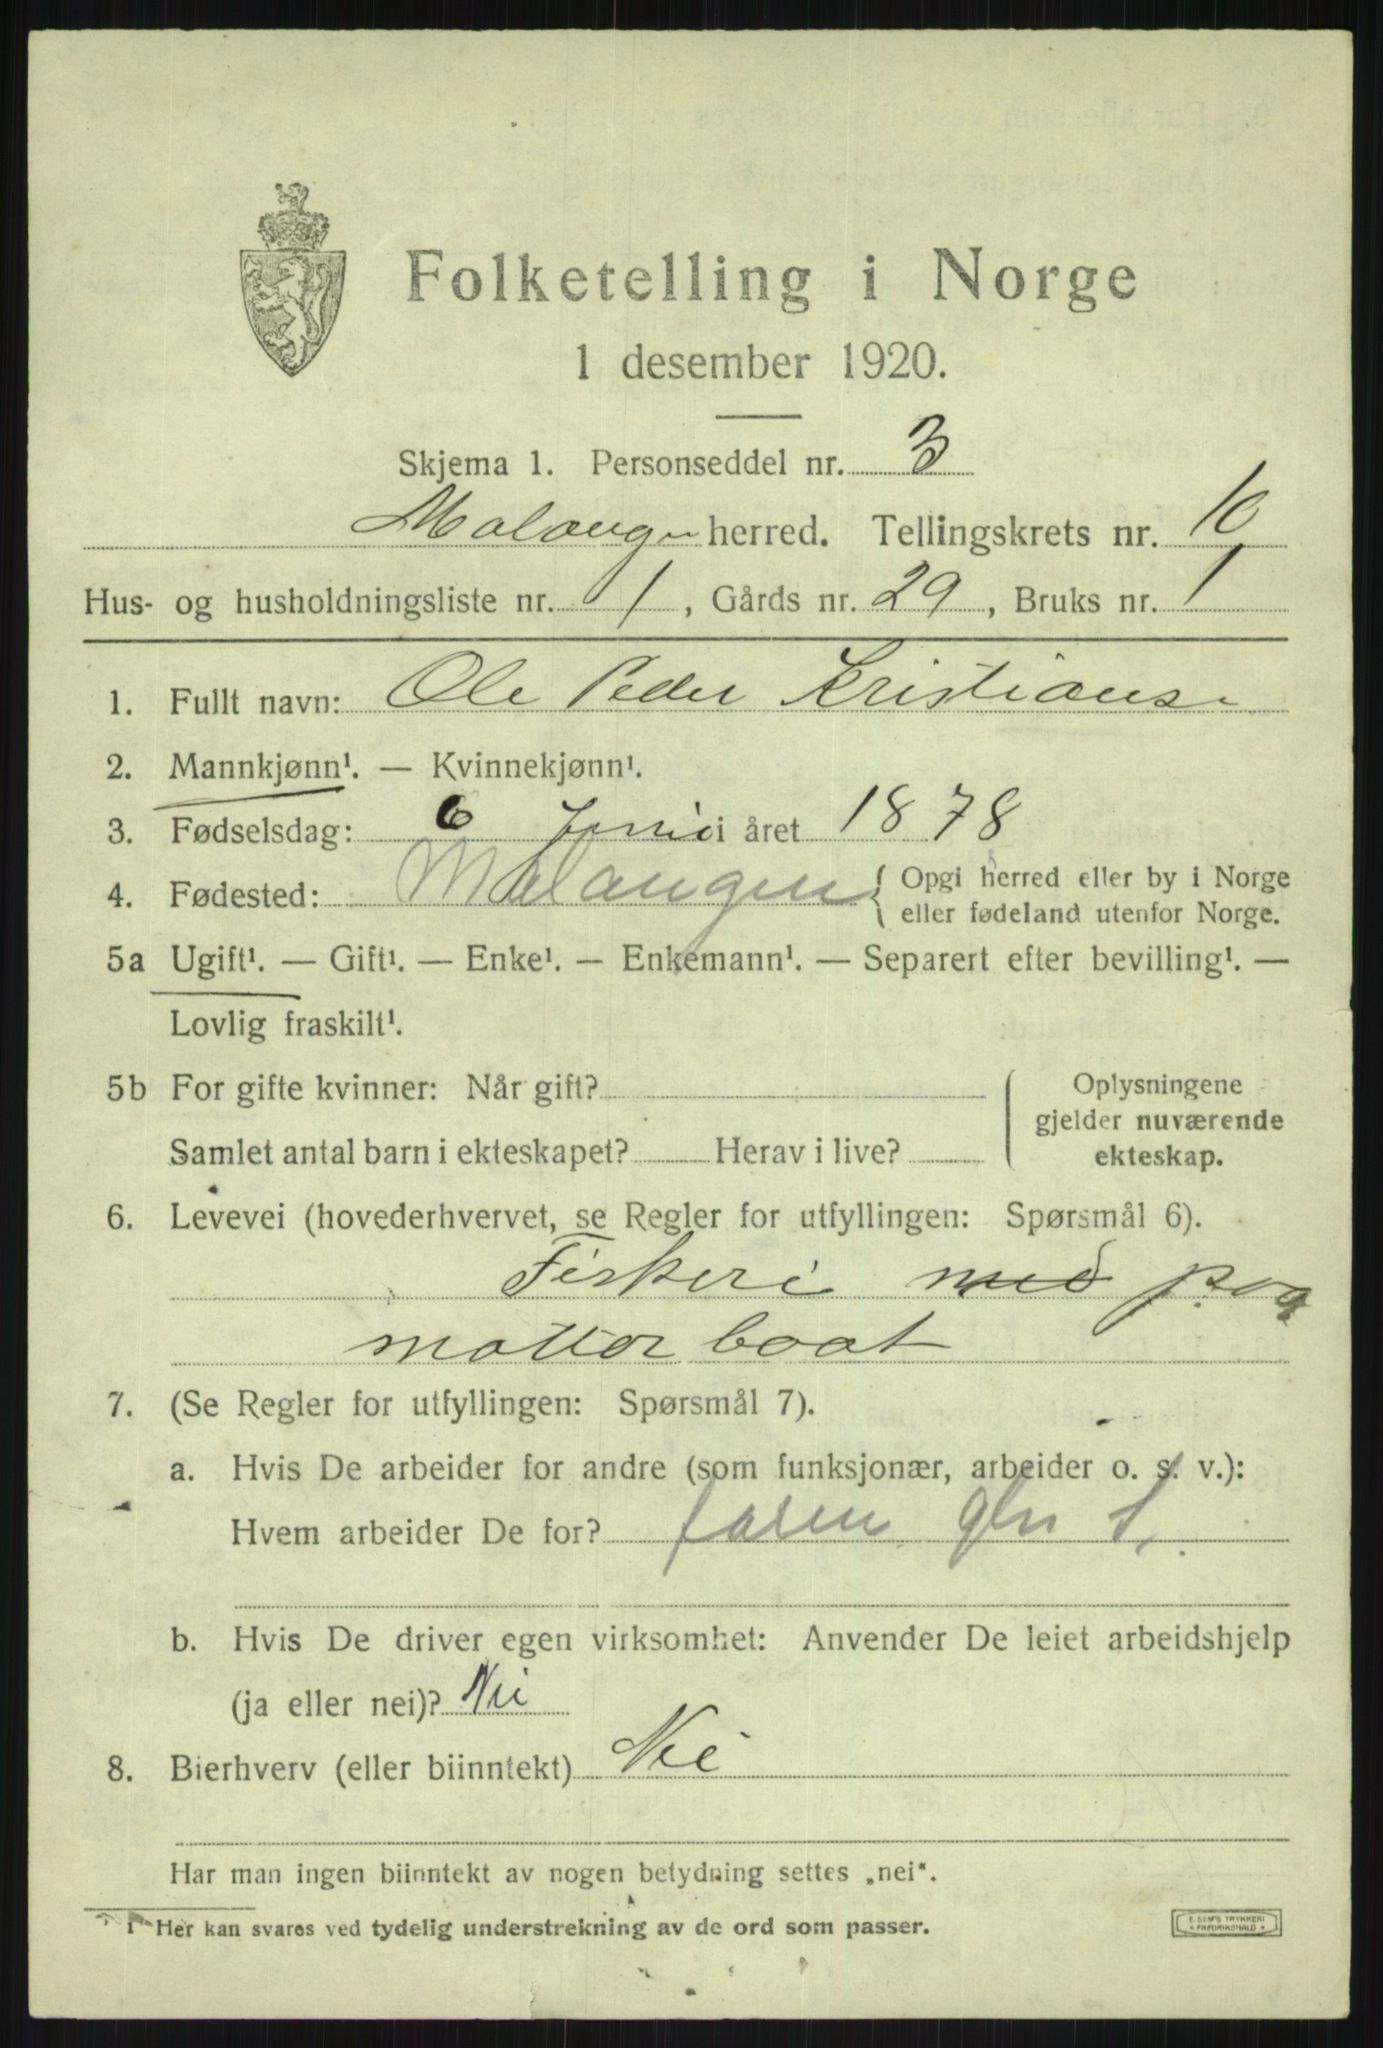 Folketelling i Norge
1 desember 1920.
Skjema 1. Personseddel nr. 3
Malangen herred. Tellingskrets nr. 10
Hus- og husholdningsliste nr. 1, Gårds nr. 29, Bruks nr. 1
1. Fullt navn: Ole Peder Kristianse
2. Mannkjønn¹. — Kvinnekjønn¹.
3. Fødselsdag: 6 i året 1878
4. Fødested: Malangen { Opgi herred eller by i Norge
eller fødeland utenfor Norge.
5a Ugift¹. — Gift¹. — Enke¹. — Enkemann¹. — Separert efter bevilling¹. —
Lovlig fraskilt¹.
5b For gifte kvinner: Når gift? Oplysningene
gjelder nuværende
Samlet antal barn i ekteskapet? Herav i live? ekteskap.
6. Levevei (hovederhvervet, se Regler for utfyllingen: Spørsmål 6).
Fiskeri med paa
mottor baat
7. (Se Regler for utfyllingen: Spørsmål 7).
a. Hvis De arbeider for andre (som funksjonær, arbeider o. s. v.):
Hvem arbeider De for? faren
b. Hvis De driver egen virksomhet: Anvender De leiet arbeidshjelp
(ja eller nei)? Nei
8. Bierhverv (eller biinntekt) Nei
Har man ingen biinntekt av nogen betydning settes „nei“.
1 Her kan svares ved tydelig understrekning av de ord som passer.
E. SEM'S TRYKKERI
FREDRIKSHALD